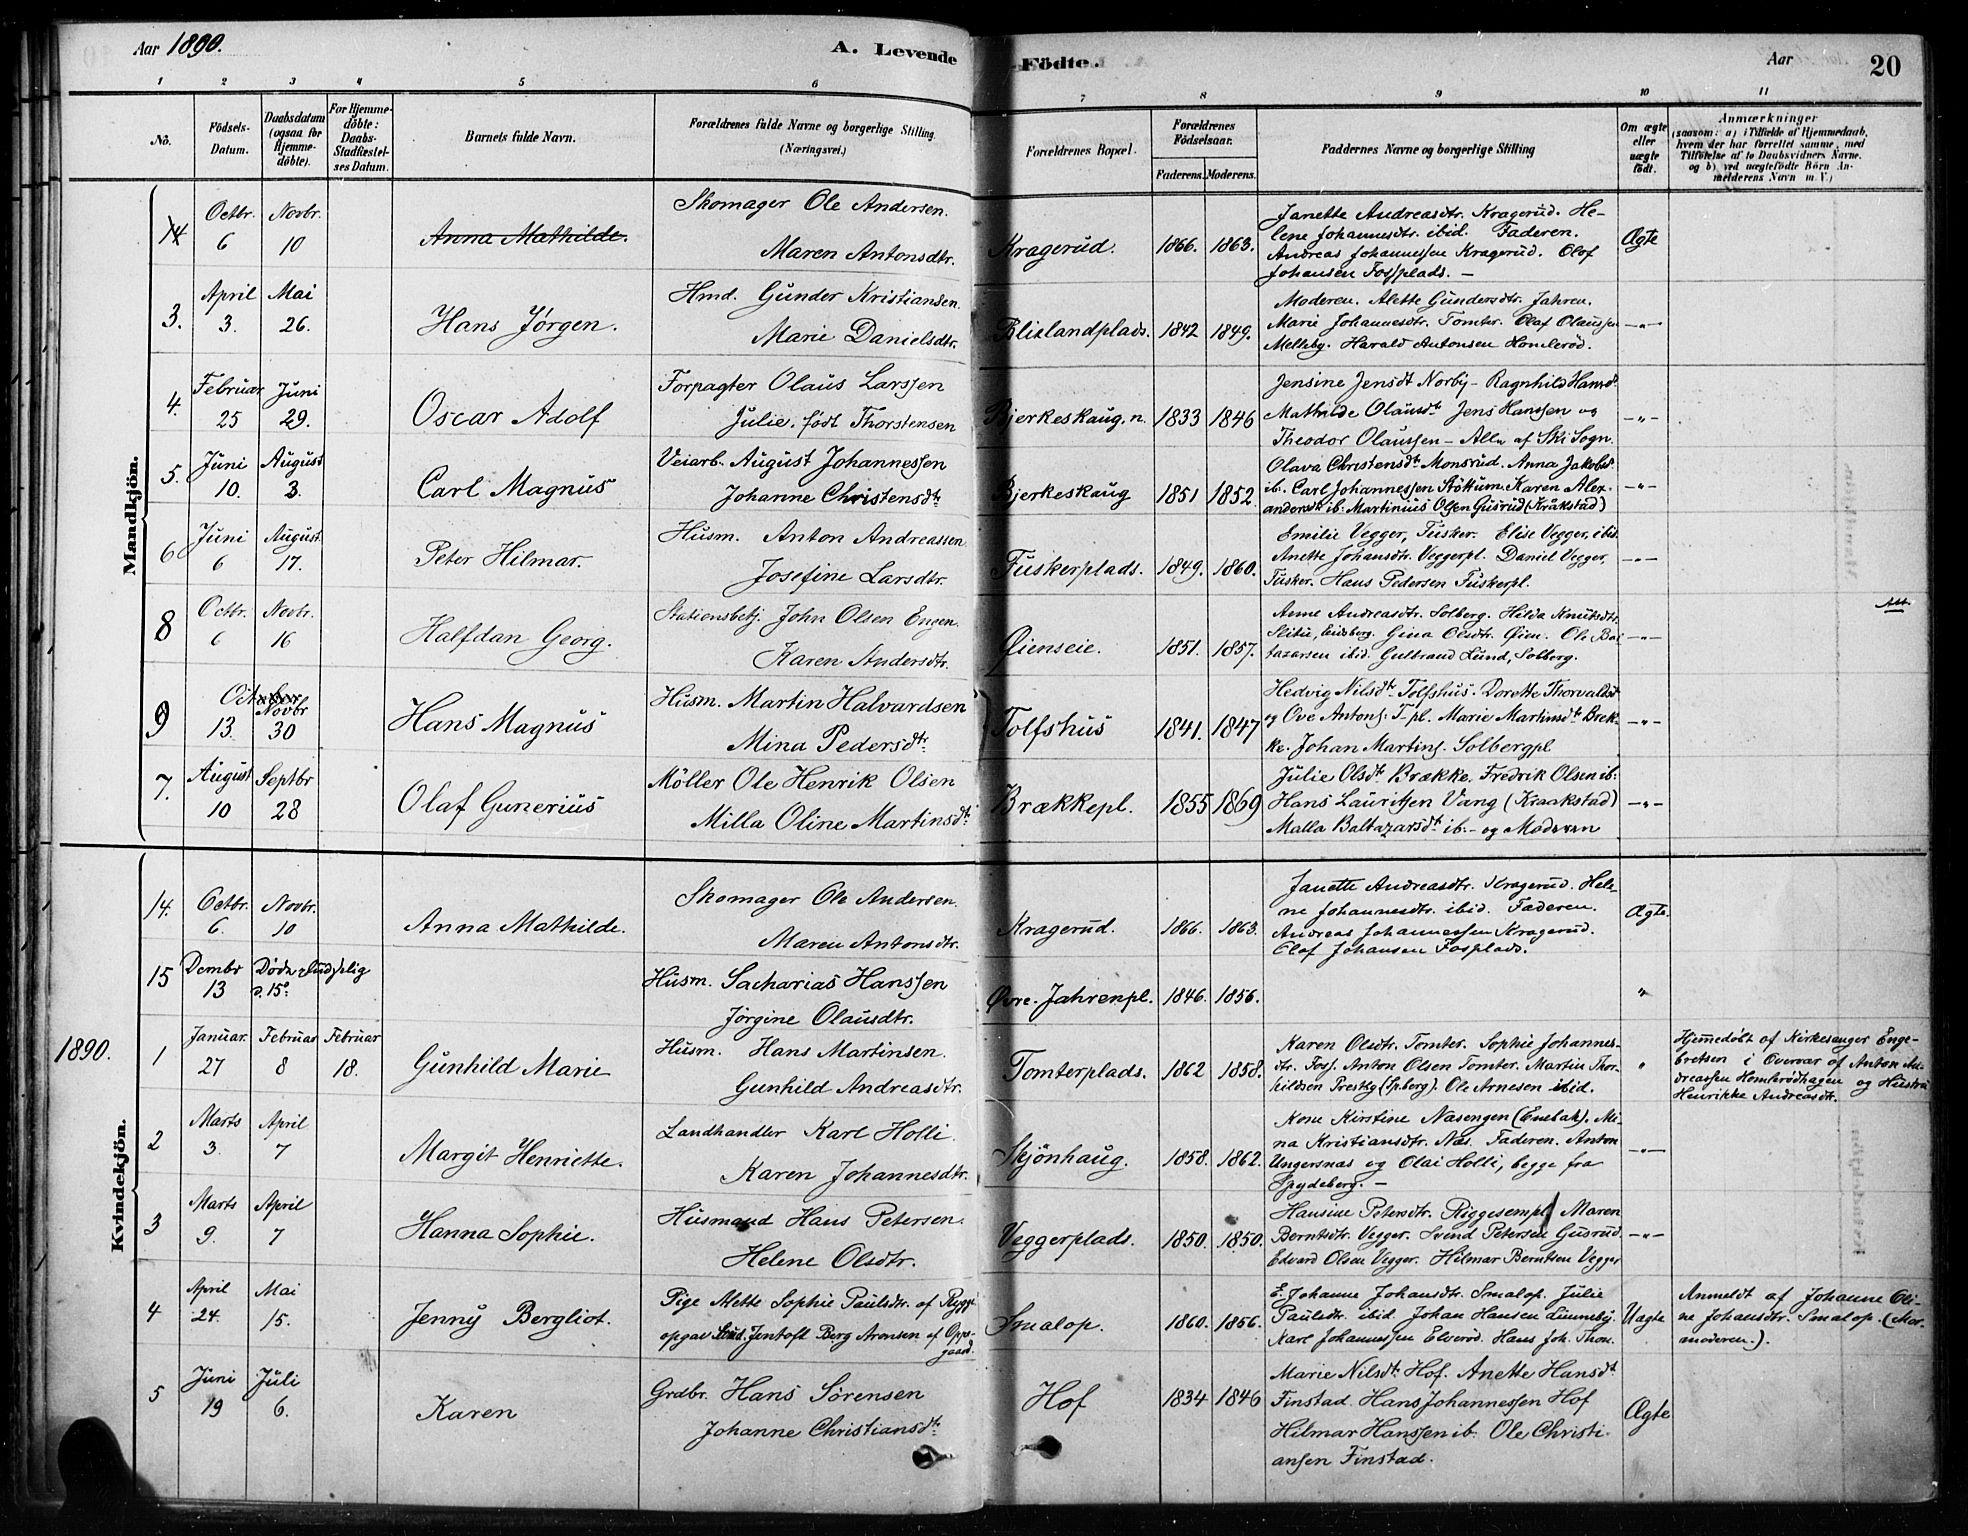 Aar 1890.
A. Levende
Födte.
Aar
20
1 2 3 4 5 6 7 8 9 10 11
No.
Födsels-
Datum.
Daabsdatum
(ogsaa for
Hjemme-
döbte).
For Hjemme-
döbte:
Daabs-
Stadfæstel-
ses Datum.
Barnets fulde Navn.
Forældrenes fulde Navne og borgerlige Stilling.
(Næringsvei.)
Forældrenes Bopæl.
Forældrenes
Födselsaar.
Faderens. Moderens.
Faddernes Navne og borgerlige Stilling
Om ægte
eller
uægte
födt.
Anmærkninger
(saasom: a) i Tilfælde af Hjemmedaab,
hvem der har forrettet samme, med
Tilföielse af to Daabsvidners Navne.
og b) ved uægtefödte Börn An-
melderens Navn m. V.)
Mandkjön.
14 Octbr. 6 Novbr. 10 Anna Mathilde.
Skomager Ole Andersen.
Maren Antonsdtr.
Kragerud. 1866. 1863.
Janette Andreasdtr. Kragerud. He-
lene Johannesdtr. ibid. Faderen.
Andreas Johannessen Kragerud. Olof
Johansen Fossplads. —
Ægte
3. April 3. Mai 26. Hans Jørgen.
Hmd. Gunder Kristiansen.
Marie Danielsdtr.
Blixlandplads. 1842 1849.
Moderen. Alette Gundersdtr. Jahren.
Marie Johannesdtr. Tomter. Olaf Olaussen
Melleby. Harald Antonsen Homlerød.
—"—
4. Februar 25 Juni 29. Oscar Adolf
Forpagter Olaus Larssen
Julie. født Thorstensen
Bjerkeskaug, n. 1833 1846
Jensine Jensdt Norby - Ragnhild Hansdt.
Mathilde Olausdt Jens Hanssen og
Theodor Olaussen - Alle af Ski Sogn.
—"—
5. Juni 10. August 3. Carl Magnus
Veiarb. August Johannessen
Johanne Christensdtr
Bjerkeskaug 1851 1852
Olava Christensdt Monsrud. Anna Jakobsd.
ib. Carl Johannessen Stöttum. Karen Alex-
andersdt ib. Martinius Olsen Gusrud (Kråkstad)
—"—
6 Juni 6 August 17. Peter Hilmar.
Husm. Anton Andreassen
Josefine Larsdtr.
Tuskerplads. 1849. 1860.
Emilie Vegger, Tusker. Elise Vegger, ibid.
Anette Johansdtr. Veggerpl. Daniel Vegger,
Tusker. Hans Pedersen Tuskerpl.
—"—
8 Octbr. 6 Novbr. 16 Halfdan Georg.
Stationsbetj. John Olsen Engen
Karen Andersdtr.
Øienseie. 1851. 1857.
Anne Andreasdtr. Solberg. Hilda Knutsdtr.
Slitu, Eidsberg. Gina Olsdtr. Øien. Ole Bal-
tazarsen ibid. Gulbrand Lund, Solberg.
—"—
Att.
9 October 13. Novbr 30 Hans Magnus
Husm. Martin Halvardsen
Mina Pedersdtr
Tolfshus 1841. 1847
Hedvig Nilsdt. Tolfshus. Dorette Thorvaldsd
og Ove Antons. T-pl. Marie Martinsdt Brek-
ke. Johan Martins. Solbergpl.
—"—
7. August 10 Septbr 28 Olaf Gunerius
Möller Ole Henrik Olsen
Milla Oline Martinsdtr
Brækkepl. 1855 1869
Julie Olsdt. Brække. Fredrik Olsen ib:
Hans Lauritsen Vang (Kraakstad)
Malla Baltazarsdt ib:- og Moderen
—"—
1890.
Kvindekjön.
14. Octbr. 6. Novbr. 10 Anna Mathilde.
Skomager Ole Andersen.
Maren Antonsdtr.
Kragerud. 1866. 1863.
Janette Andreasdtr. Kragerud. Hele-
ne Johannesdtr. ibid. Faderen.
Andreas Johannessen Kragerud.
Olof Johansen Fosplads.
Ægte.
15 Dcmbr 13 d. 15de
Husm. Sacharias Hanssen
Jörgine Olausdtr.
Øvre-Jahrenpl. 1846. 1856.
"
1 Januar. 27 Februar 8 Februar 18. Gunhild Marie
Husm. Hans Martinsen.
Gunhild Andreasdtr.
Tomterplads. 1862 1858.
Karen Olsdtr. Tomter. Sophie Johannes-
dtr. Foss. Anton Olsen Tomter. Martin Thor-
hildsen Prestly (Sp.berg). Ole Arnesen ibid.
"
Hjemmedøbt af Kirkesanger Enge-
bretsen i Overvær af Anton An-
dreassen Homlerødhagen og Hustru
Henrikke Andreasdtr.
2 Marts 3. April 7 Margit Henriette.
Landhandler Karl Holli.
Karen Johannesdtr.
Skjönhaug. 1858. 1862.
Kone Kirstine Næsengen (Enebak). Mi-
na Kristiansdtr. Næs. Faderen. Anton
Ungersnæs og Olai Holli, begge fra
Spydeberg. —
—"—
3 Marts 9. April 7 Hanna Sophie.
Husmand Hans Petersen.
Helene Olsdtr.
Veggerplads. 1850. 1850.
Hansine Petersdtr. Riggesempl. Maren
Berntsdtr. Vegger. Svend Petersen Gusrud.
Edvard Olsen Vegger. Hilmar Berntsen Vegger
—"—
4 April 24. Mai 15. Jenny Bergliot.
Pige Mette Sophie Paulsdtr. af Rygge
opgav Jentoft Berg Aronsen af Opp-
gaard.
Smalop. 1860. 1856.
E. Johanne Johansdtr. Smalop. Julie
Paulsdtr. ibid. Johan Hansen Lunneby.
Karl Johannessen Elverød. Hans Joh. Thon.
Uægte
Anmeldt af Johanne Oli-
ne Johansdtr. Smalop. (Mor-
moderen.).
5 Juni 19 Juli 6. Karen
Grdbr. Hans Sörensen
Johanne Christiansdtr
Hof 1834 1846
Marie Nilsdt. Hof. Anette Hansdt.
Finstad. Hans Johannessen Hof
Hilmar Hanssen ib. Ole Christi-
ansen Finstad.
Ægte